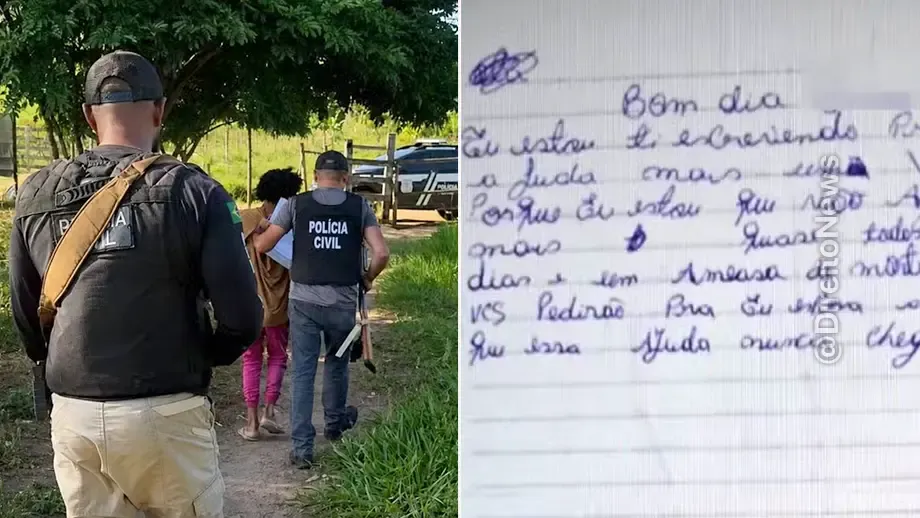 POLÍCIA
POLÍCIA
CIVIL
POLÍCIA
Bom dia
Eu estou ti escrevendo
a Juda mais um
Porque Eu estou que não
mais quase todos
dias e um Ameasa di
vcs Pedirão Pra Eu
que essa Ajuda nunca
@DireitoNews